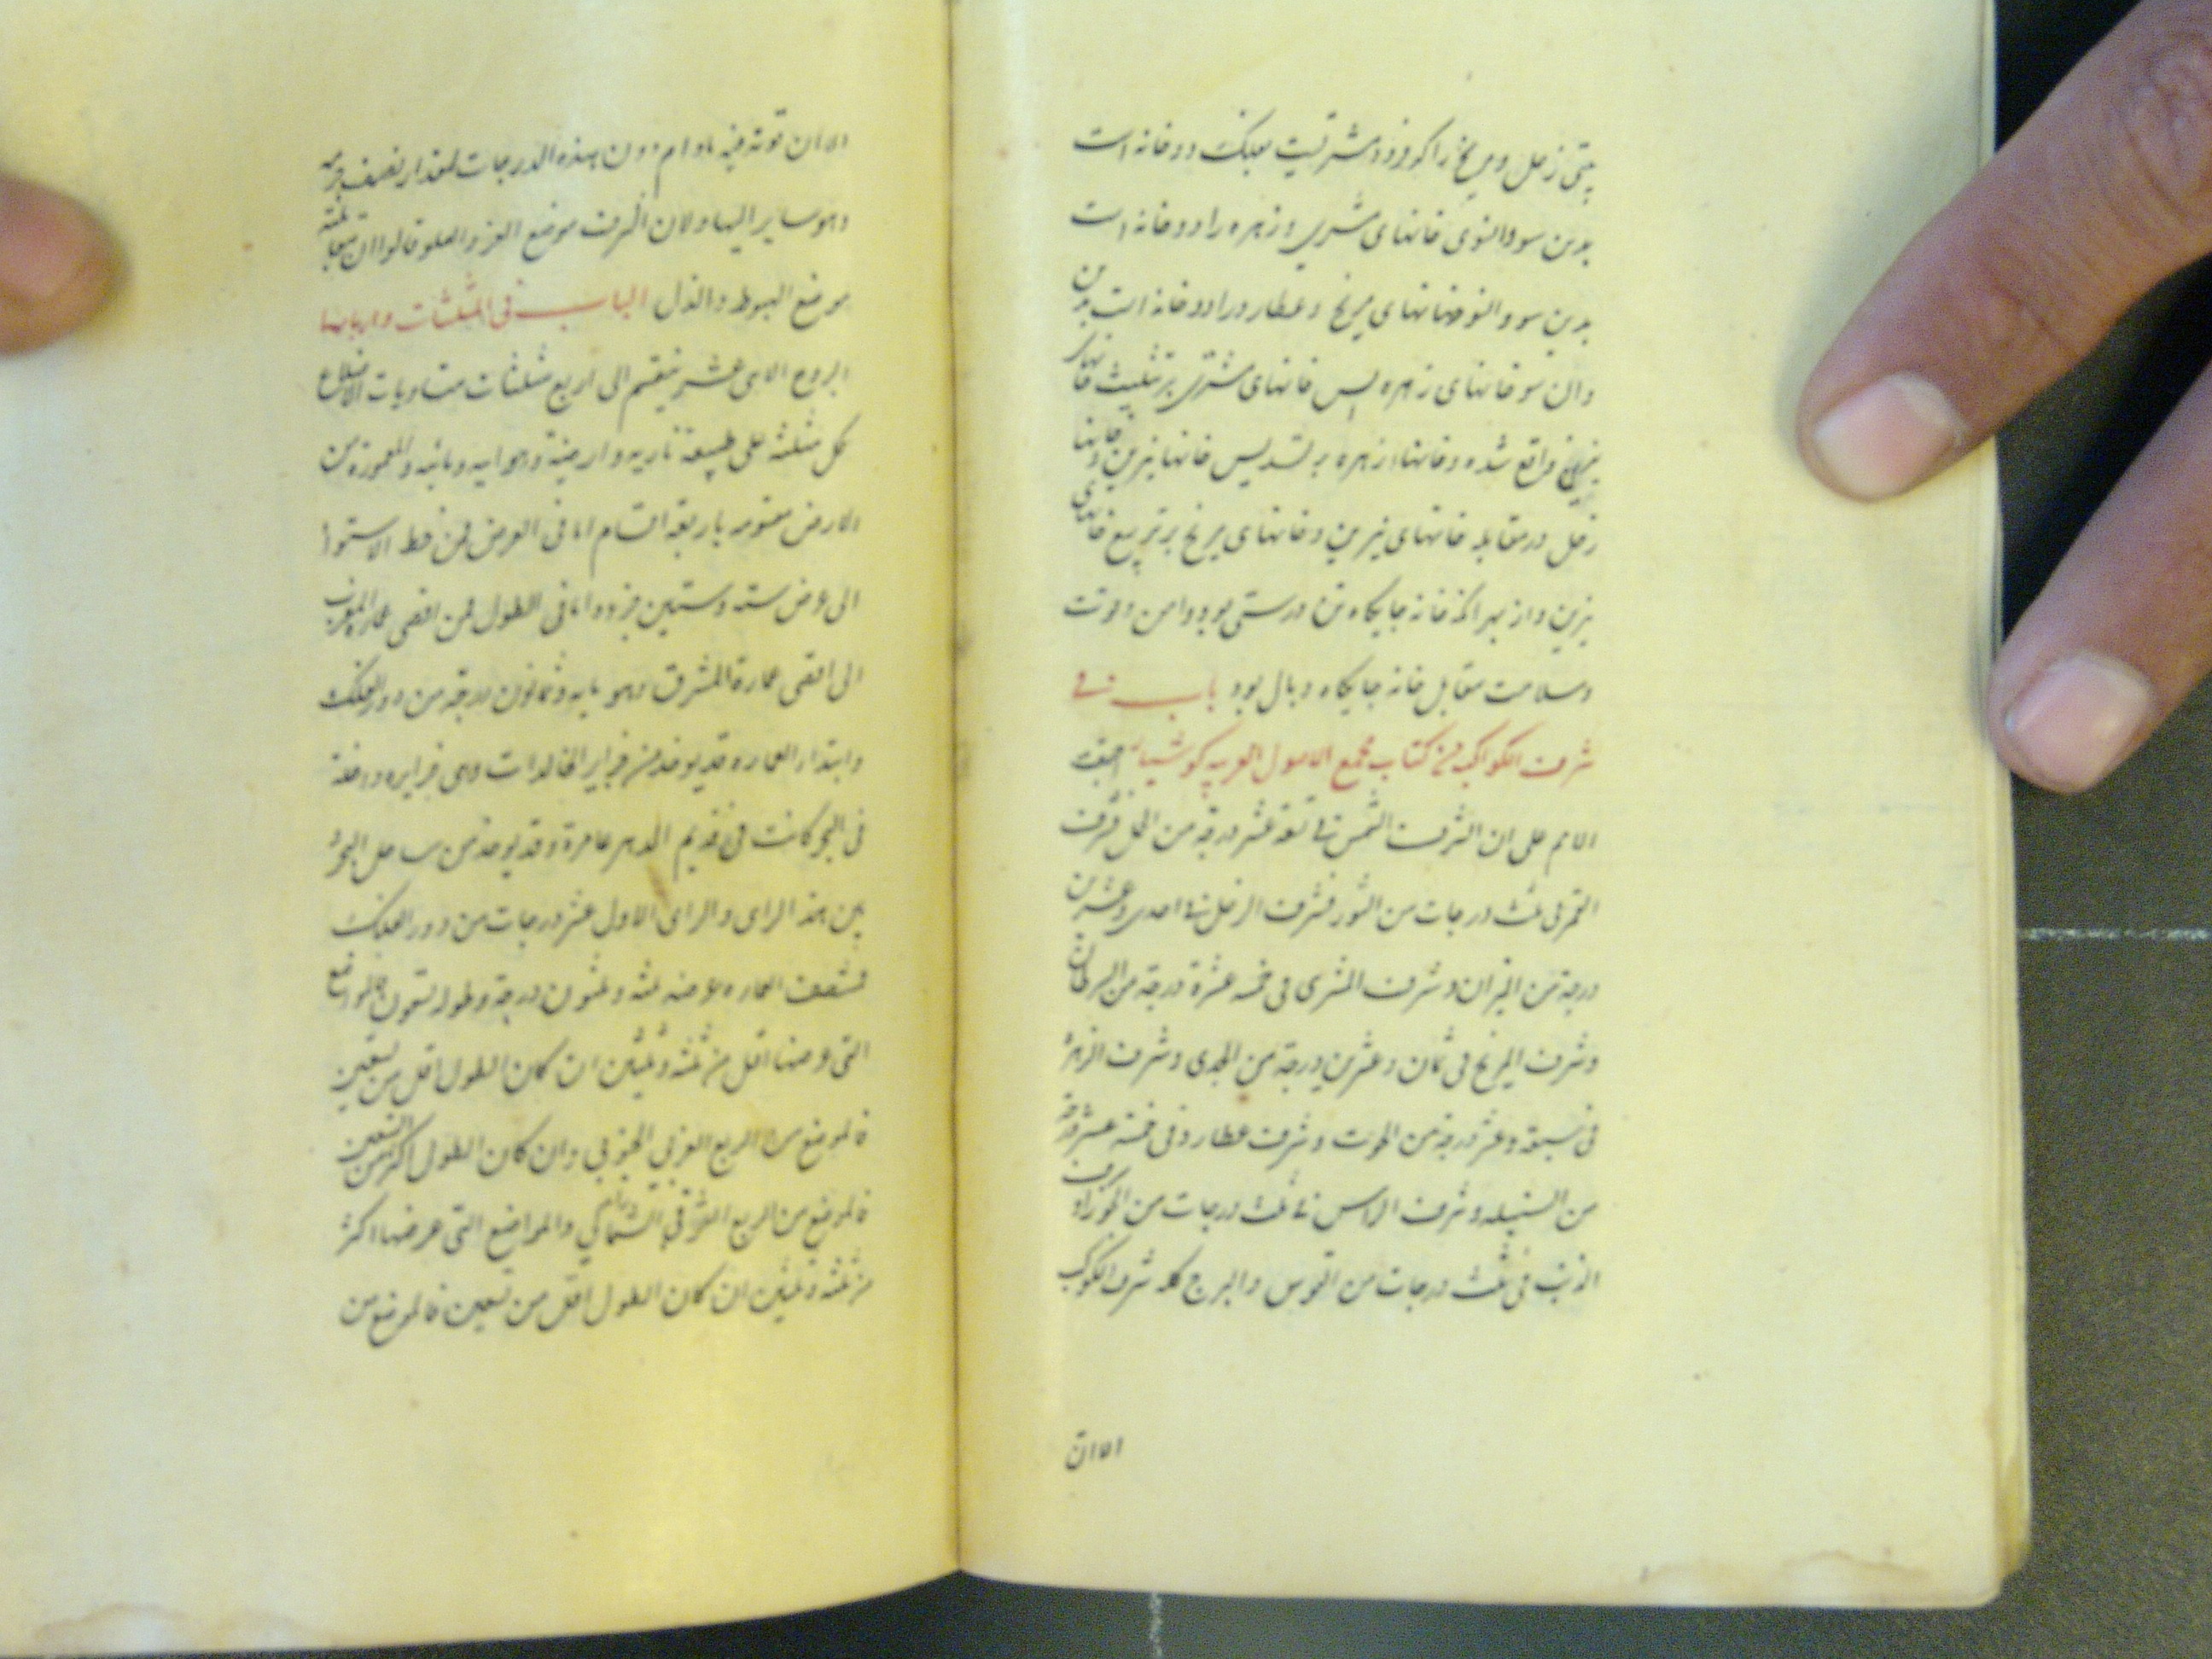 زحل ومریخ را که فرود مشتریست بفلک دو خانه است
بدین سو و انسوی خانهای مشتری و زهره را دو خانه است
بدین سو و انسو خانهای مریخ و عطارد را دو خانه است بدین
وان سو خانهای زهره پس خانهای مشتری بر تثلیث خانهای
واقع شده و خانها زهره بر تسدیس خانها نیرین و خانها
زحل در مقابله خانهای نیرین و خانهای مریخ بر تربیع خانهای
نیرین و از بهر انکه خانه جایگاه تن درستی بود و امن و قوت
وسلامت مقابل خانه جایگاه وبال بود باب فی
شرف الکواکب من کتاب مجمع الاصول کوشیار اجتمعت
الامم علی ان الشرف الشمس فی تسعة عشر درجة من الحمل فشرف
القمر فی ثلث درجات من الثور فشرف الزحل فی احدی وعشرین
درجة من المیزان وشرف المشتری فی خمسه عشرة درجة من السرطان
وشرف المریخ فی ثمان وعشرین درجة من الجدی وشرف الزهرة
فی سبعة وعشر درجة من الحوت وشرف عطارد فی خمسه عشر درجة
من السنبله وشرف الراس فی ثلث درجات من الجوزا وشرف
الذنب فی ثلث درجات من القوس والبرج کله شرف الکوکب
الا ان
الا ان قوته فیه مادام دون هذه الدرجات بمقدار نصف جرمه
وهو سایر الیها ولان الشرف موضع العز والعلو قالوا ان مقابلته
موضع الهبوط والذل الباب فی المثلثات واربابها
البروج الاثنی عشر ینقسم الی اربع مثلثات متساویات الاضلاع
کل مثلثه علی طبیعة ناریه وارضیة وهواییه ومائیه والمعمورة من
الارض مقسومه باربعة اقسام اما فی العرض فمن خط الاستوا
الی عرض سته وستین جزو واما فی الطول فمن اقصی عمارة المغرب
الی اقصی عمارة المشرق وهو مایه وثمانون درجة من دور الفلک
وابتداء العماره قد یوخذ من جزایر الخالدات وهی جزایر داخلة
فی البحر کانت فی قدیم الدهر عامرة وقد یوخذ من ساحل البحر و
بین هذا الرای والرای الاول عشر درجات من دور الفلک
فنصف العماره عرضه ثلثه وثلثون درجة وطوله تسعون فالمواضع
التی عرضها اقل من ثلثه وثلثین ان کان الطول اقل من تسعین
فالموضع من الربع الغربی الجنوبی وان کان الطول اکثر من التسعین
فالموضع من الربع الشرقی الشمالی والمواضع التی عرضها اکثر
من ثلثه وثلثین ان کان الطول اقل من تسعین فالموضع من